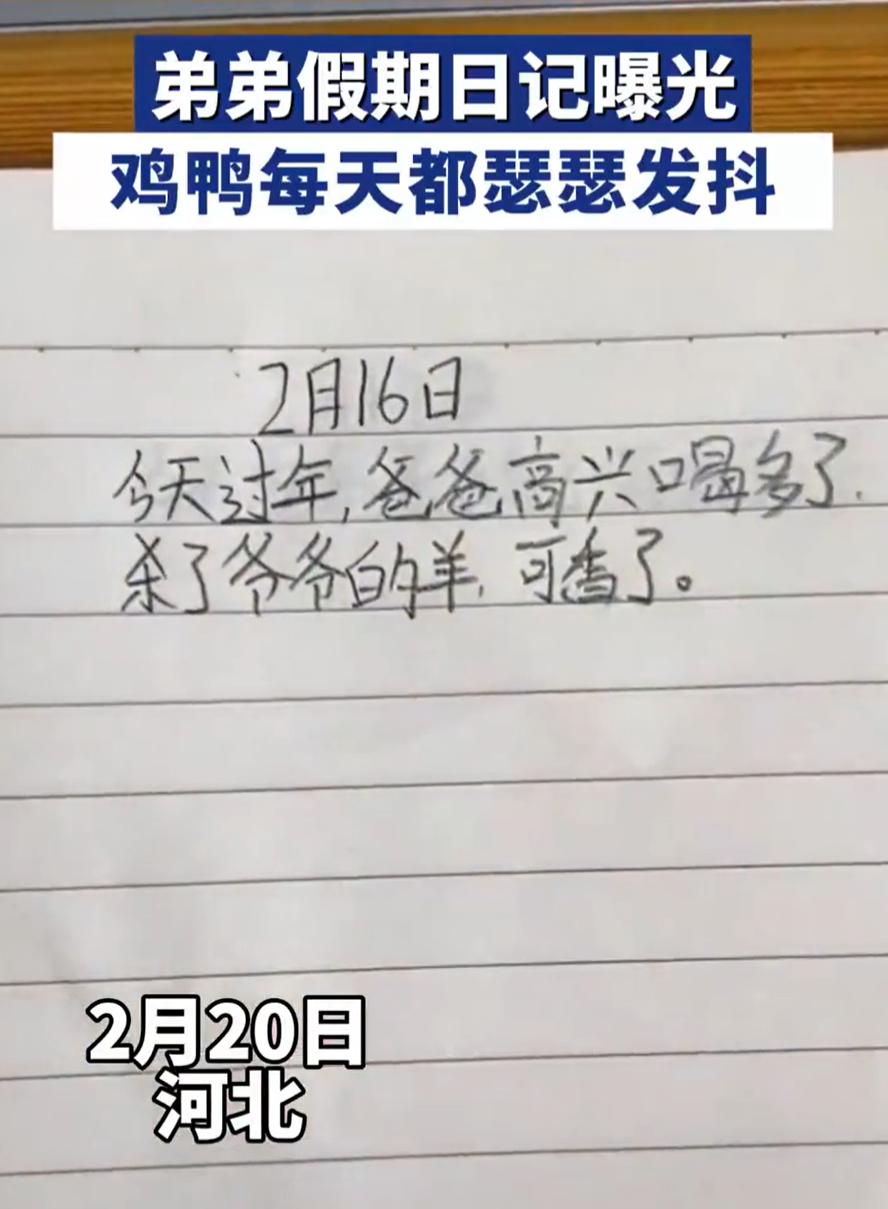 弟弟假期日记曝光
鸡鸭每天都瑟瑟发抖
2月16日
今天过年,爸爸高兴喝多了.
杀了爷爷的羊,可香了。
2月20日
河北